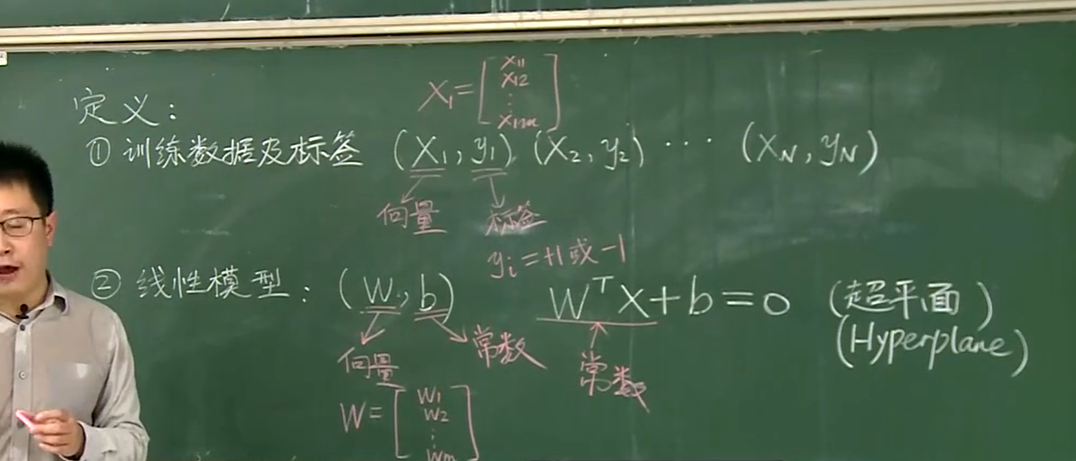 定义:
X₁=[x₁₁ x₁₂ ⋮ x₁ₘ]
① 训练数据及标签 (X₁, y₁) (X₂, y₂) ··· (X_N, y_N)
向量 标签
yᵢ = +1 或 -1
② 线性模型: (W, b) WᵀX+b=0 (超平面)
(Hyperplane)
向量 常数 常数
W=[W₁ W₂ ⋮ Wₘ]